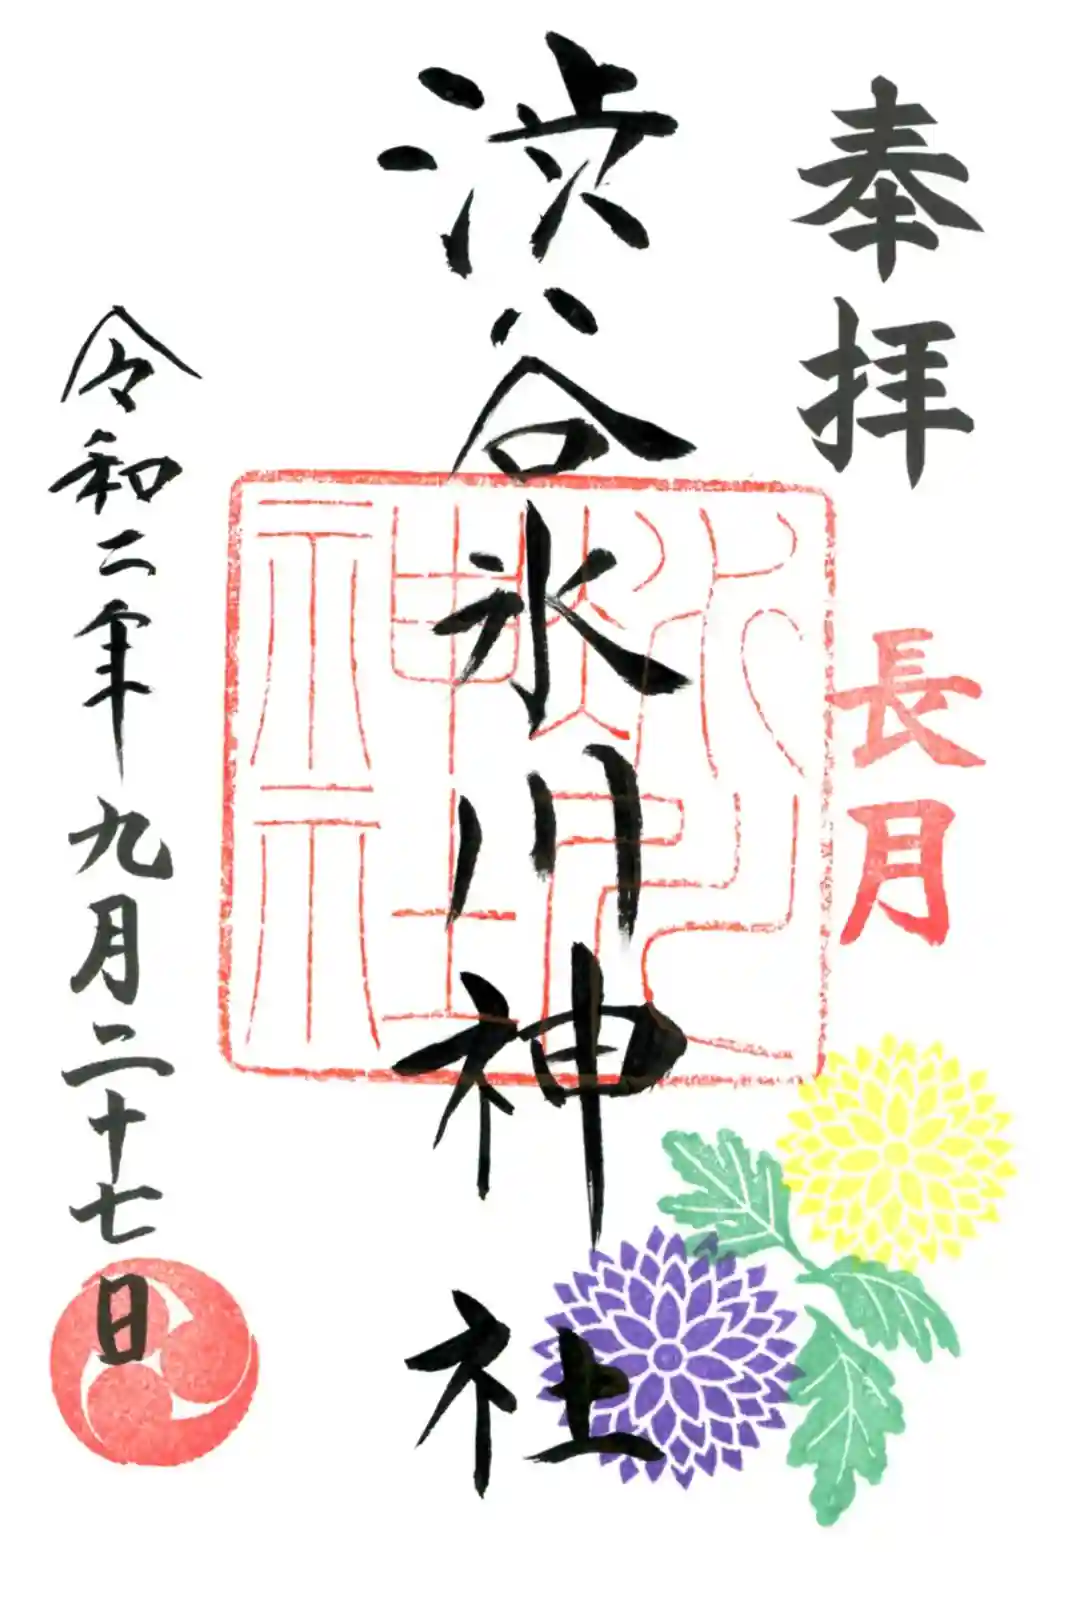 奉拝
長月
渋谷氷川神社
氷川
神社
令和二年九月二十七日